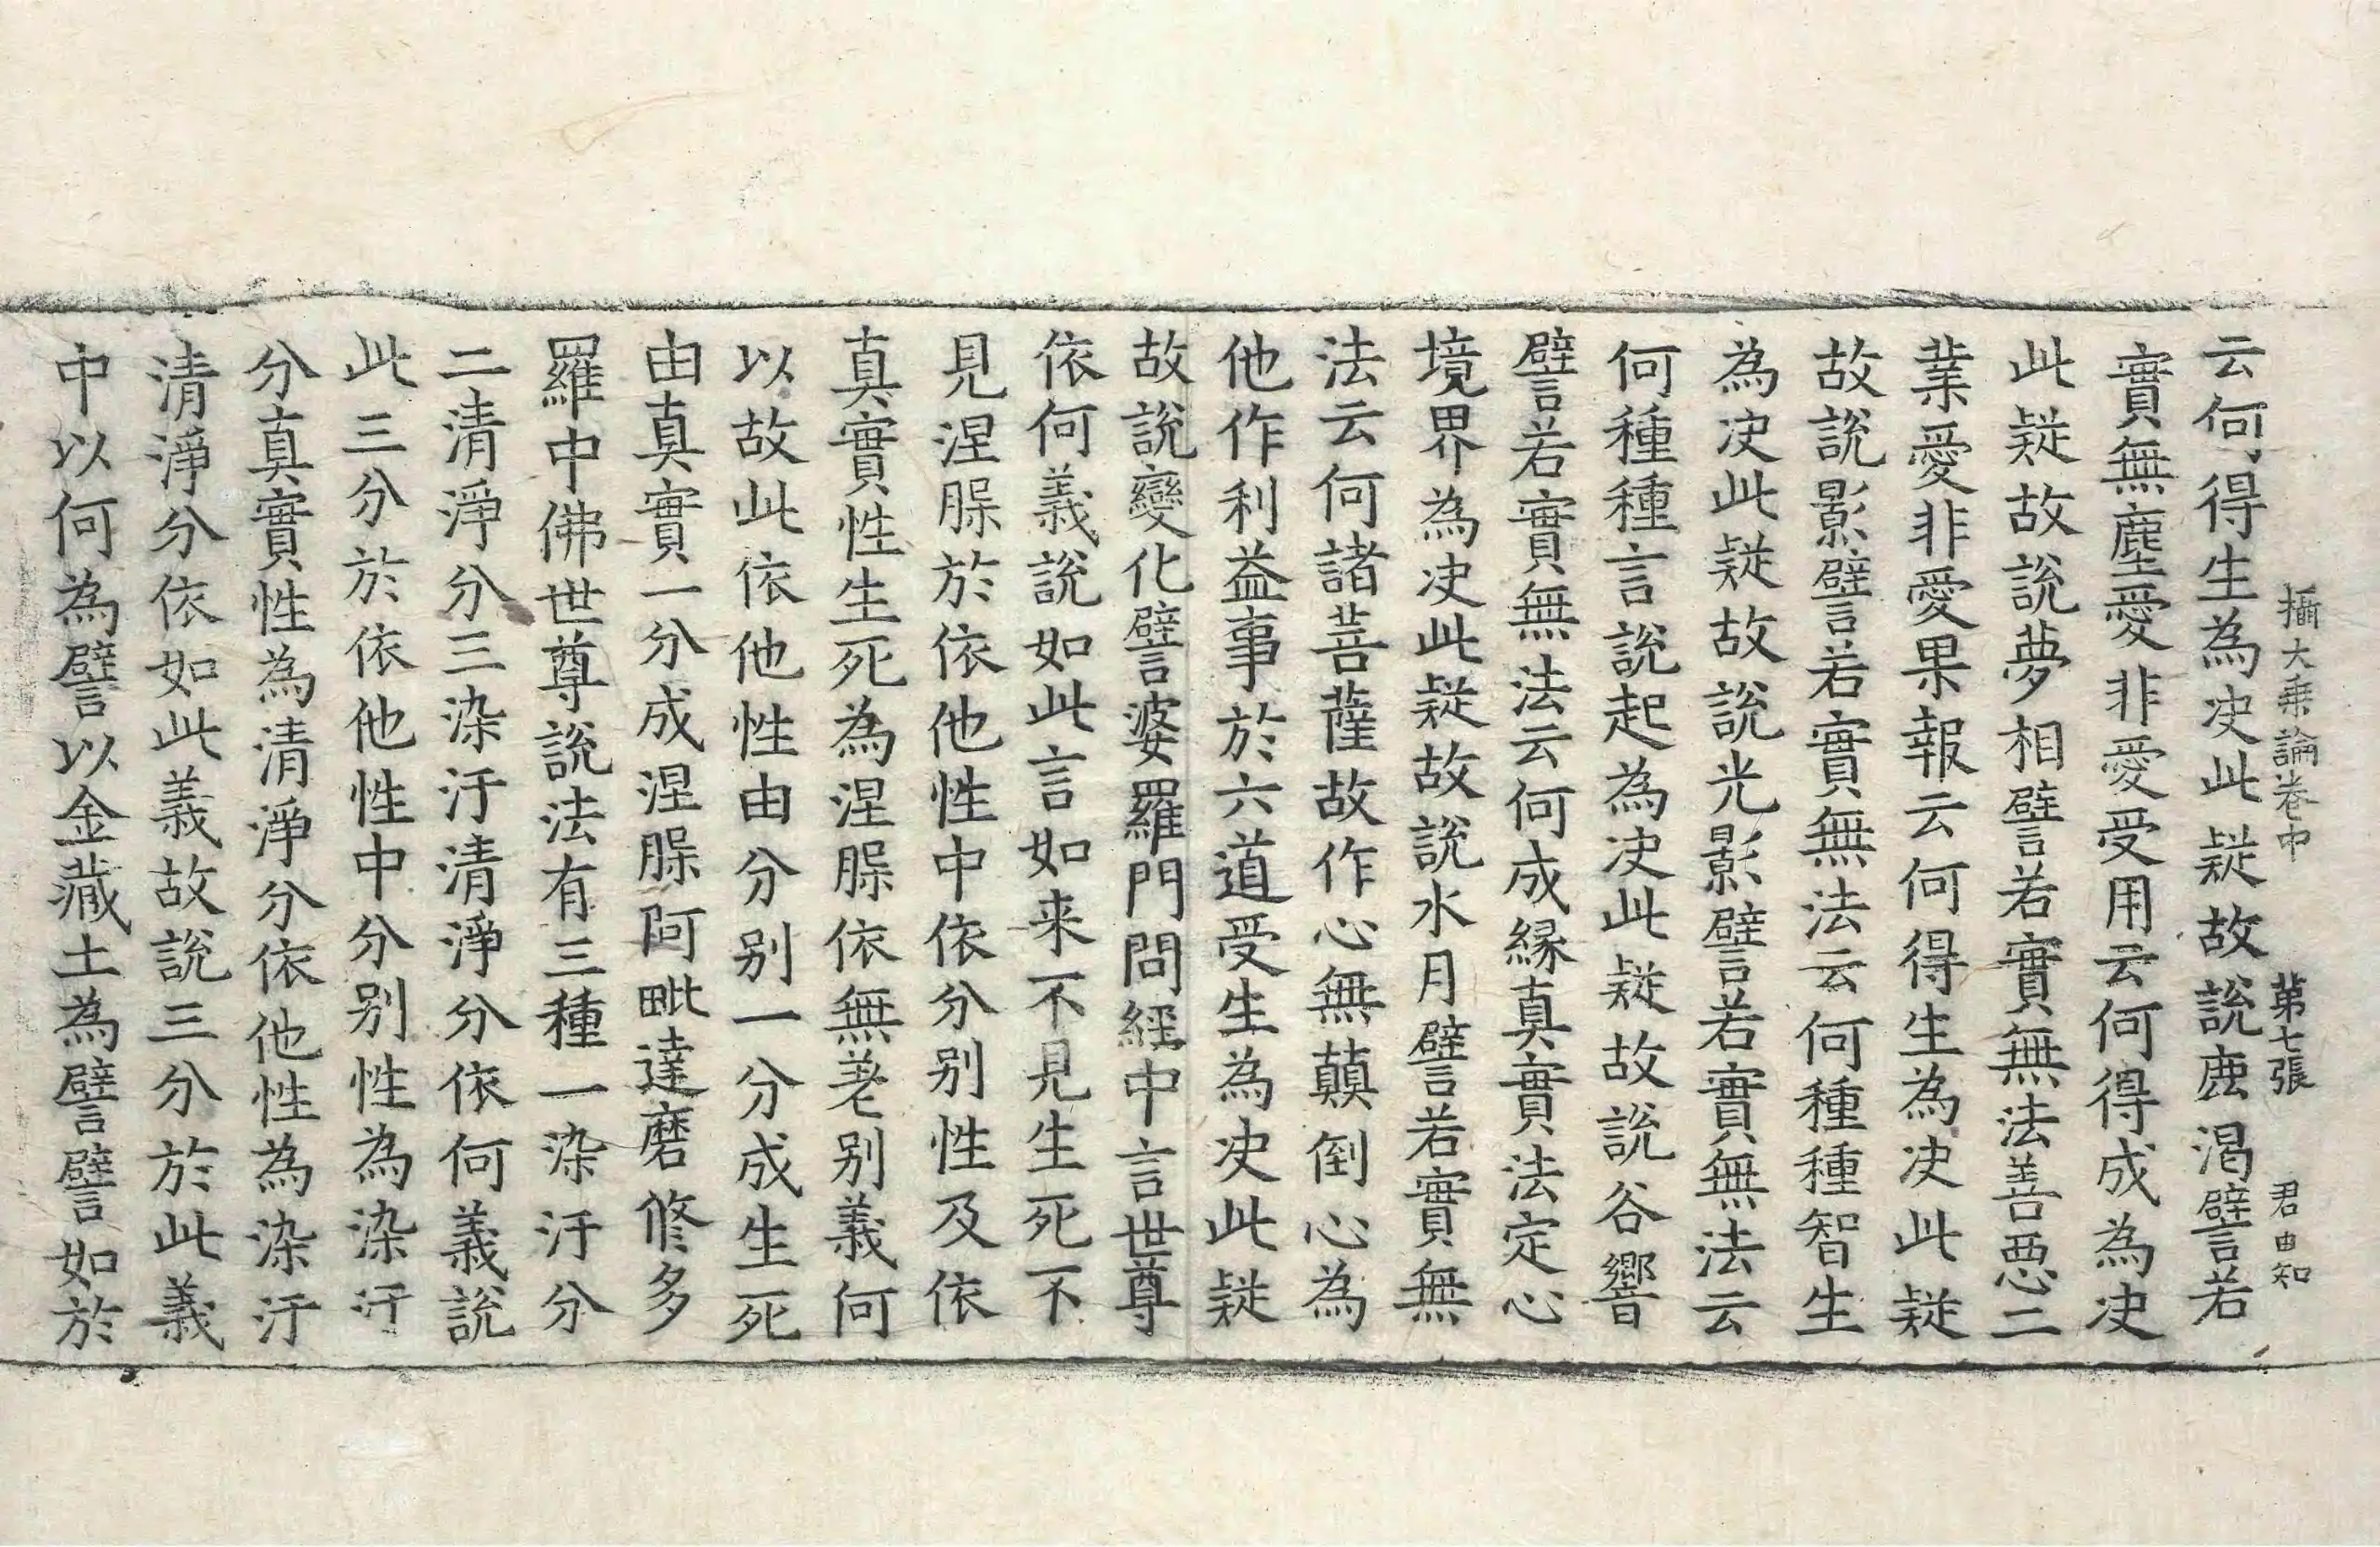 攝大乗論卷中 第七張 君由知
云何得生為决此疑故說鹿渴譬若
實無塵愛非愛受用云何得成為决
此疑故說夢相譬若實無法善惡二
業愛非愛果報云何得生為决此疑
故說影譬若實無法云何種種智生
為决此疑故說光影譬若實無法云
何種種言說起為决此疑故說谷響
譬若實無法云何成縁真實法定心
境界為决此疑故說水月譬若實無
法云何諸菩薩故作心無顛倒心為
他作利益事於六道受生為决此疑
故說變化譬婆羅門問經中言世尊
依何義說如此言如来不見生死不
見涅槃於依他性中依分别性及依
真實性生死為涅槃依無差别義何
以故此依他性由分别一分成生死
由真實一分成涅槃阿毗達磨修多
羅中佛世尊說法有三種一染汙分
二清淨分三染汙清淨分依何義說
此三分於依他性中分别性為染汙
分真實性為清淨分依他性為染汙
清淨分依如此義故說三分於此義
中以何為譬以金藏土為譬譬如於